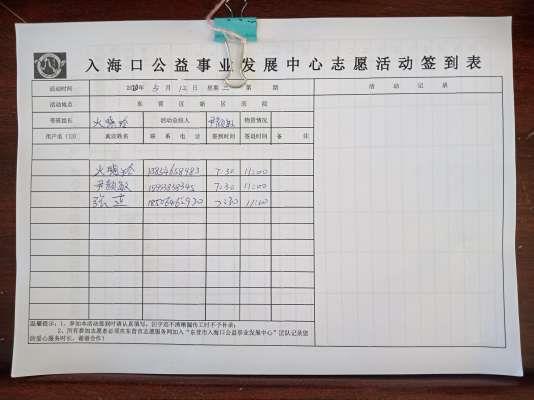 入海口公益事业发展中心志愿活动签到表
活动时间 2020年 5月 12日 星期二 第 期 活动记录
活动地点 东营区新区医院
带班组长 火晓玲 活动总指人 尹颜敏 物资情况
用户名（ID） 真实姓名 联系电话 签到时间 签退时间 备注
火晓玲 7:30 11:00
尹颜敏 7:30 11:00
张 7:30 11:00
温馨提示：1、参加本活动签到时请认真填写，因字迹不清难漏传工时不予补录；
2、所有参加志愿者必须在东营市志愿服务网加入“东营市入海口公益事业发展中心”团队记录您
的爱心服务时长，谢谢合作！